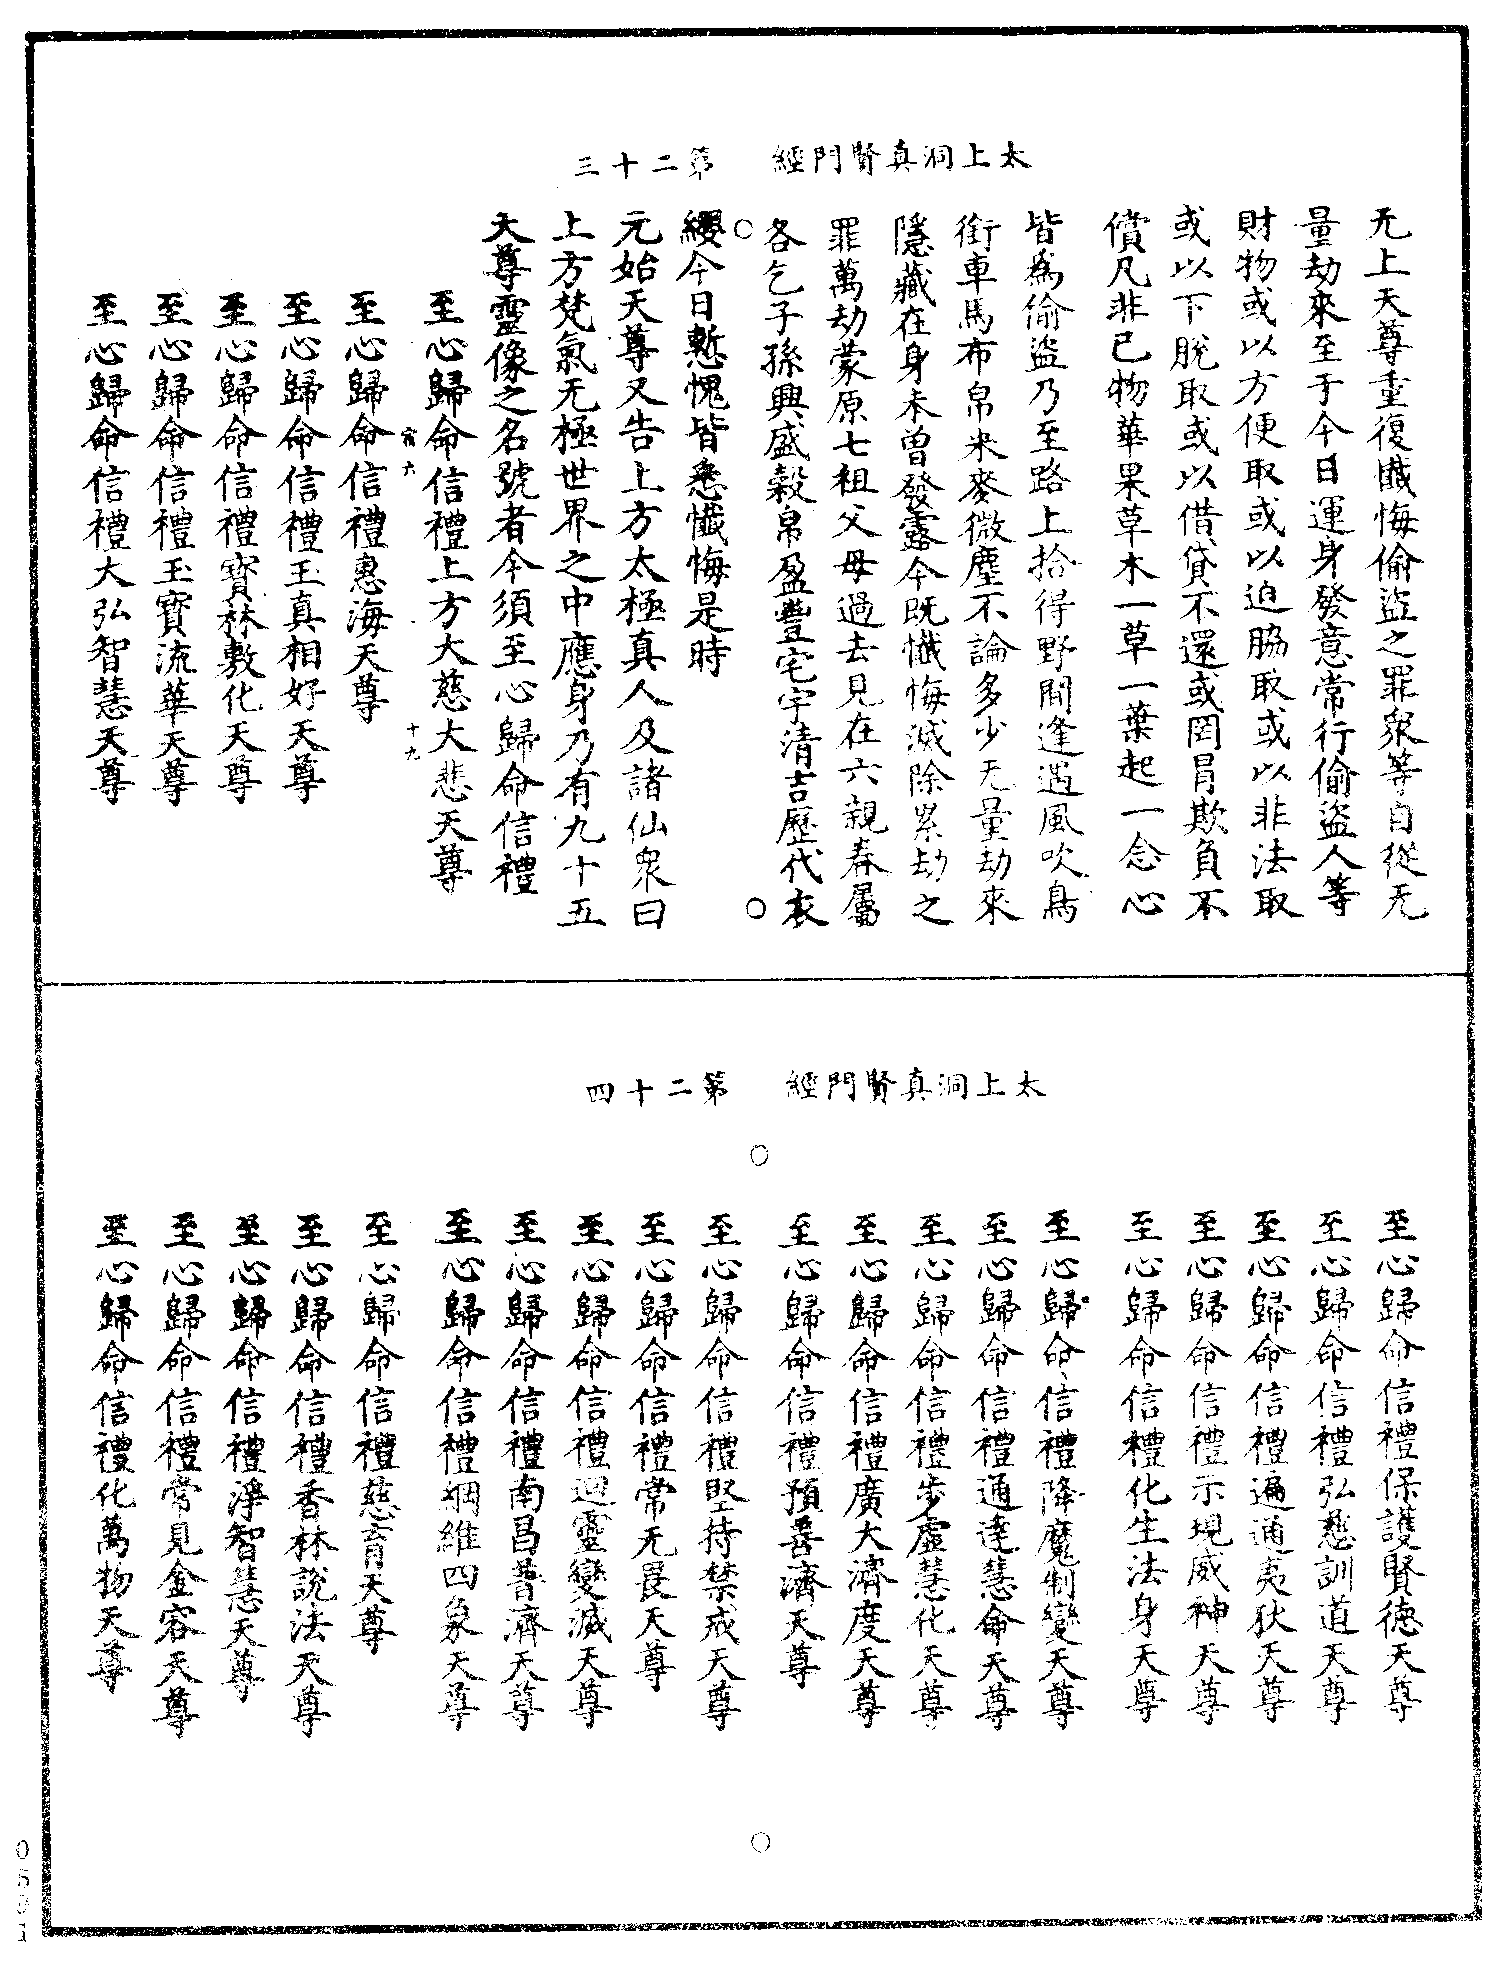 太上洞真賢門經　第二十三
无上天尊重復懺悔偷盜之罪衆等自從无
量劫來至于今日運身發意常行偷盜人等
財物或以方便取或以迫脇取或以非法取
或以下脫取或以借貸不還或罔冐欺負不
償凡非已物華果草木一草一葉起一念心
皆爲偷盜乃至路上拾得野間逢遇風吹鳥
銜車馬布帛米麥微塵不論多少无量劫來
隱藏在身未曾發露今旣懺悔滅除累劫之
罪萬劫蒙原七祖父母過去見在六親眷屬
各乞子孫興盛穀帛盈豐宅宇清吉歷代衣
纓今日慙愧皆悉懺悔是時
元始天尊又告上方太極真人及諸仙衆曰
上方梵氣无極世界之中應身乃有九十五
天尊靈像之名號者今須至心歸命信禮
至心歸命信禮上方大慈大悲天尊
宿六　十九
至心歸命信禮惠海天尊
至心歸命信禮玉真相好天尊
至心歸命信禮寶林敷化天尊
至心歸命信禮玉寶流華天尊
至心歸命信禮大弘智慧天尊
太上洞真賢門經　第二十四
至心歸命信禮保護賢德天尊
至心歸命信禮弘慈訓道天尊
至心歸命信禮遍通夷狄天尊
至心歸命信禮示現威神天尊
至心歸命信禮化生法身天尊
至心歸命信禮降魔制變天尊
至心歸命信禮通達慧命天尊
至心歸命信禮步虛慧化天尊
至心歸命信禮廣大濟度天尊
至心歸命信禮預善濟天尊
至心歸命信禮堅持禁戒天尊
至心歸命信禮常无畏天尊
至心歸命信禮迴靈變滅天尊
至心歸命信禮南昌普濟天尊
至心歸命信禮綱維四象天尊
至心歸命信禮慈育天尊
至心歸命信禮香林說法天尊
至心歸命信禮淨智慧天尊
至心歸命信禮常見金容天尊
至心歸命信禮化萬物天尊